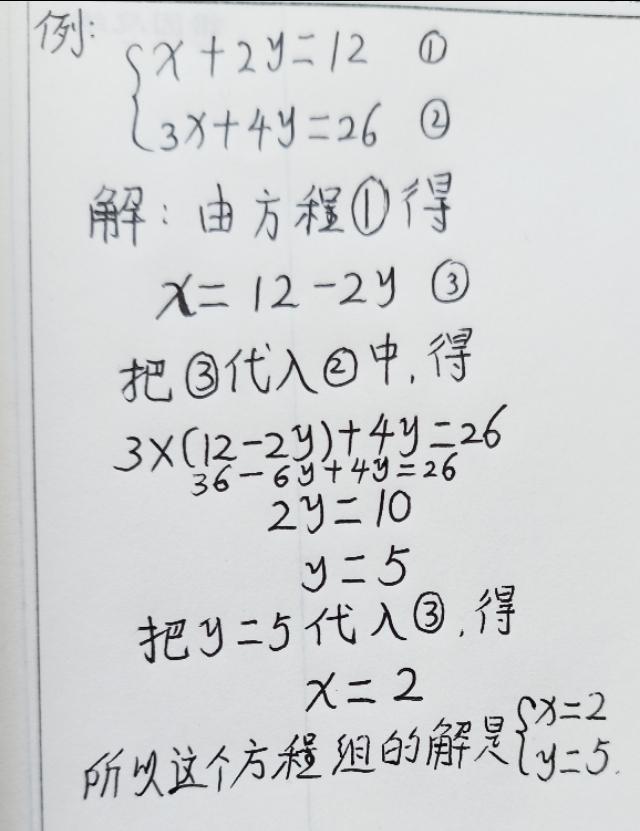 例:
{x+2y=12 ①
3x+4y=26 ②
解:由方程①得
x=12-2y ③
把③代入②中,得
3×(12-2y)+4y=26
36-6y+4y=26
2y=10
y=5
把y=5代入③,得
x=2
所以这个方程组的解是{x=2
y=5.